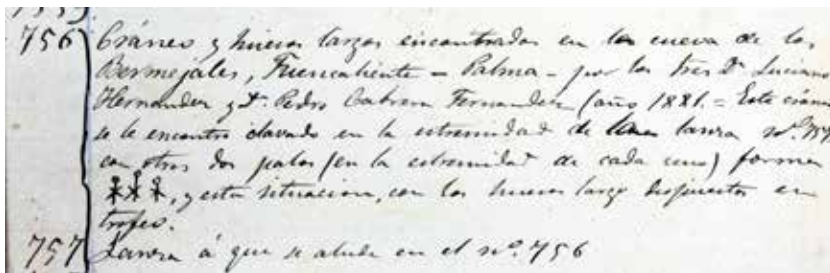 756 Cráneo y huesos largos encontrados en la cueva de los
Bermejales, Fuencaliente = Palma = por los Sres Dn Luciano
Hernandez y Dn Pedro Cabrera Fernandez (año 1881. = Este cráneo
se le encontró clavado en la estremidad de la lanza nº. 757
con otros dos palos (en la estremidad de cada uno) forma
, y esta situacion, con los huesos largo dispuestos en
trofeo.
757 Lanza á que se alude en el nº. 756